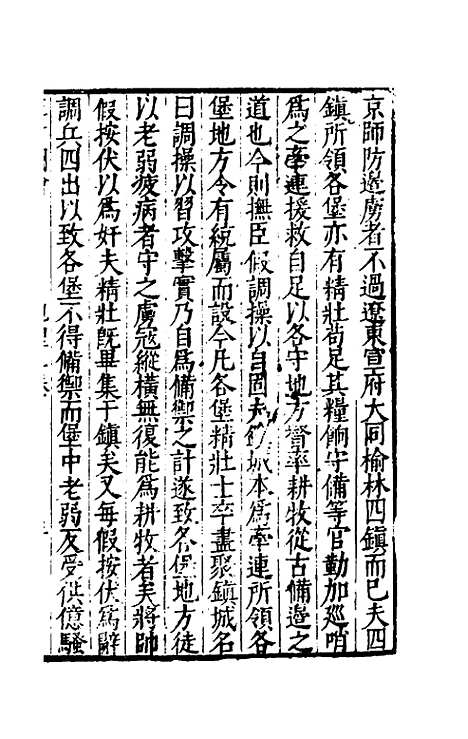 京師防邊虜者不過遼東宣府大同榆林四鎮而已夫四
鎮所領各堡亦有精壯苟足其糧餉守備等官勤加廵哨
爲之牽連援救自足以各守地方督率耕牧從古備邊之
道也今則撫臣假調操以自固夫鎮城本爲牽連所領各
堡地方令有統屬而設今凡各堡精壯士卒盡聚鎮城名
曰調操以習攻擊實乃自爲備禦之計遂致各堡地方徒
以老弱疲病者守之虜寇縱橫無復能爲耕牧者矣將帥
假按伏以爲奸夫精壯旣畢集于鎮矣又每假按伏爲辭
調兵四出以致各堡不得備禦而堡中老弱反受供億騷